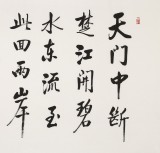 天门中断
楚江開碧
水东流至
此回兩岸